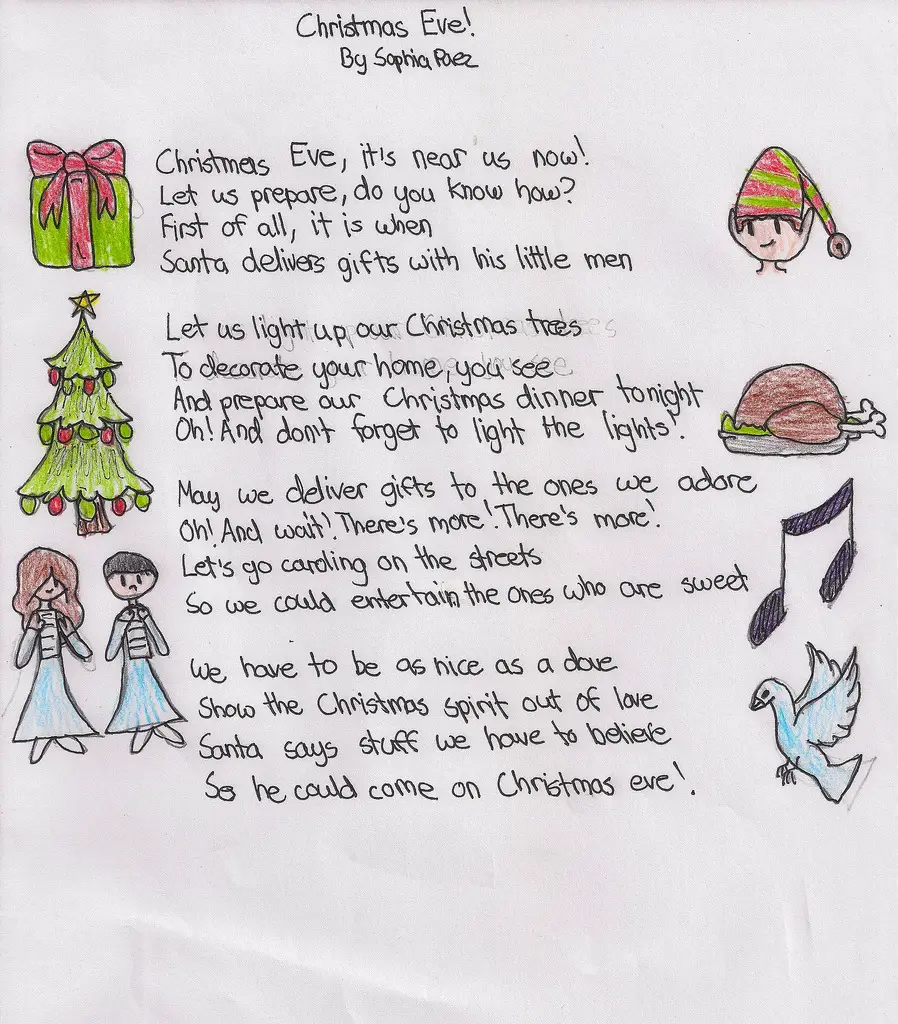 Christmas Eve!
By Sophia Paez
Christmas Eve, it's near us now!
Let us prepare, do you know how?
First of all, it is when
Santa delivers gifts with his little men
Let us light up our Christmas trees
To decorate your home, you see
And prepare our Christmas dinner tonight
Oh! And don't forget to light the lights!
May we deliver gifts to the ones we adore
Oh! And wait! There's more! There's more!
Let's go caroling on the streets
So we could entertain the ones who are sweet
We have to be as nice as a dove
Show the Christmas spirit out of love
Santa says stuff we have to believe
So he could come on Christmas eve!